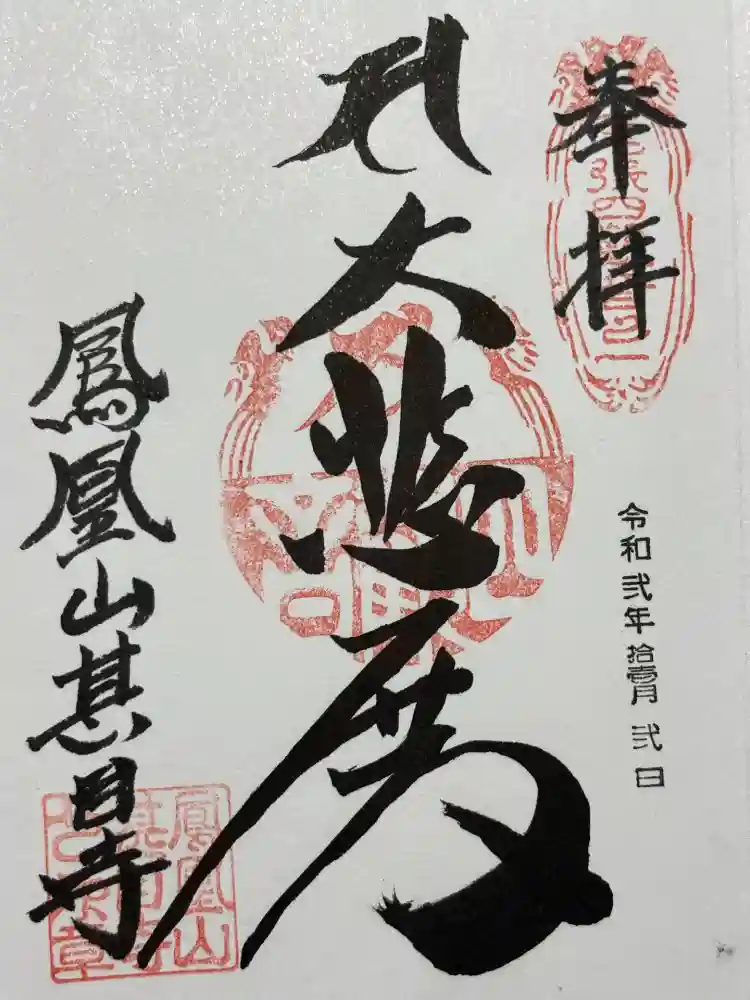 奉拝
令和弐年拾壱月弐日
大悲殿
鳳凰山甚目寺
鳳凰山
甚目寺